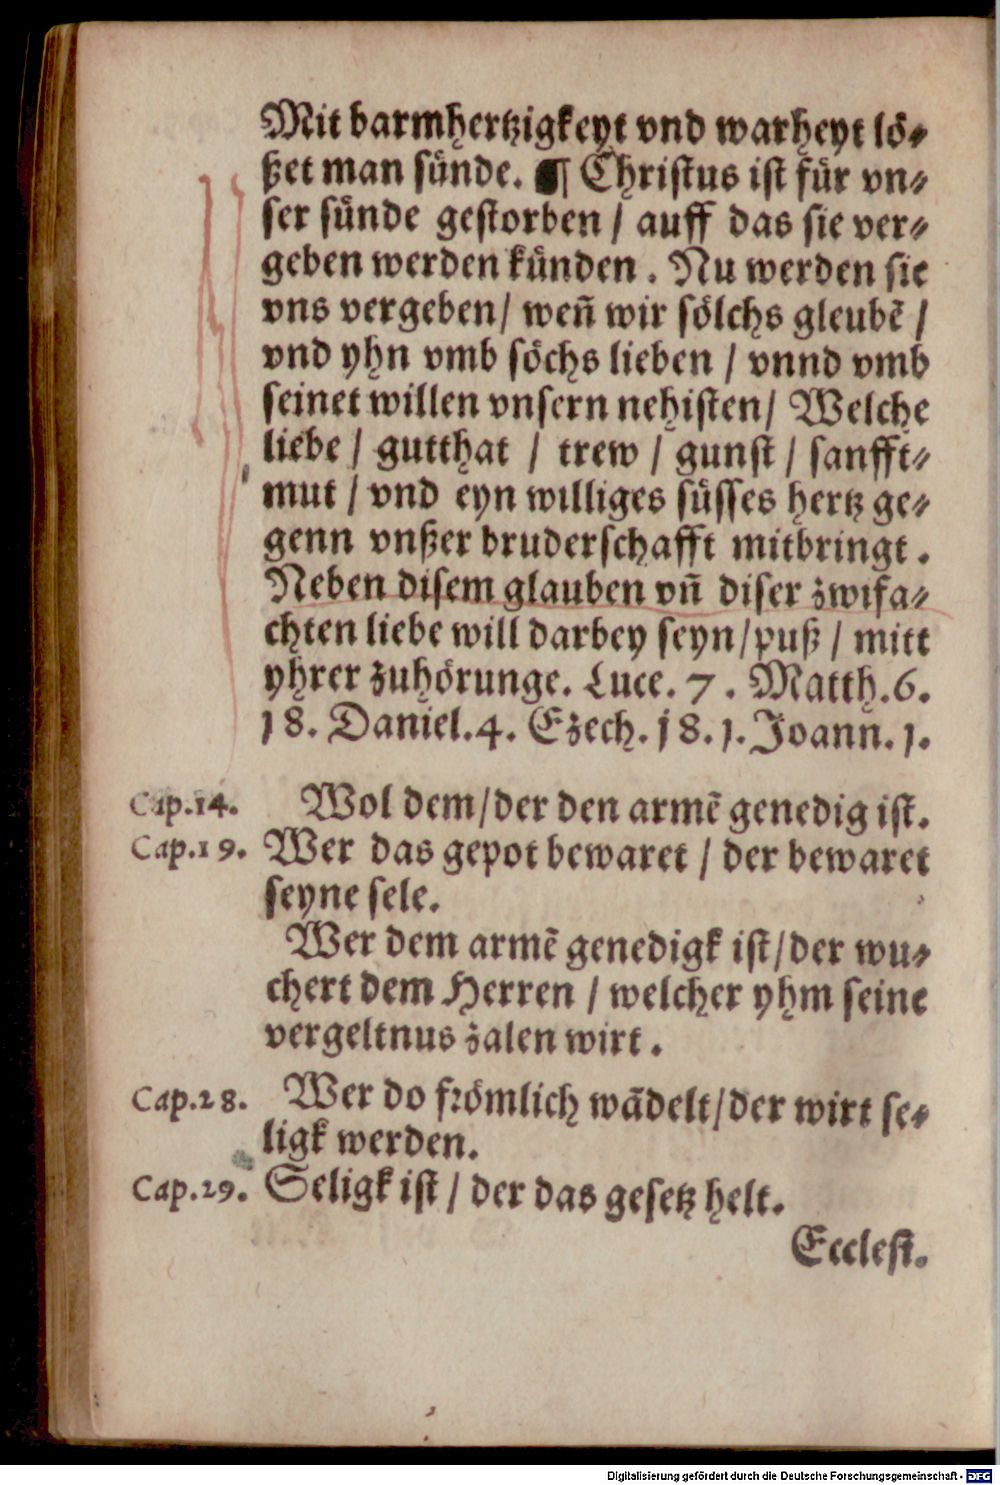 Mit barmhertzigkeyt vnd warheyt lö⸗
ßet man sünde. ¶ Christus ist für vn⸗
ser sünde gestorben / auff das sie ver⸗
geben werden künden . Nu werden sie
vns vergeben / weñ wir sölchs gleubē /
vnd yhn vmb söchs lieben / vnnd vmb
seinet willen vnsern nehisten / Welche
liebe / gutthat / trew / gunst / sanfft⸗
mut / vnd eyn williges süsses hertz ge⸗
genn vnßer bruderschafft mitbringt .
Neben disem glauben vñ diser zwifa⸗
chten liebe will darbey seyn / puß / mitt
yhrer zuhörunge. Luce. 7 . Matth. 6.
18. Daniel. 4. Ezech. 18. 1. Joann. 1.
Cap. 14. Wol dem / der den armē genedig ist.
Cap. 19. Wer das gepot bewaret / der bewaret
seyne sele.
Wer dem armē genedigk ist / der wu⸗
chert dem Herren / welcher yhm seine
vergeltnus zalen wirt .
Cap. 28. Wer do frömlich wādelt / der wirt se⸗
ligk werden.
Cap. 29. Seligk ist / der das gesetz helt.
Ecclesi.
Digitalisierung gefördert durch die Deutsche Forschungsgemeinschaft - DFG